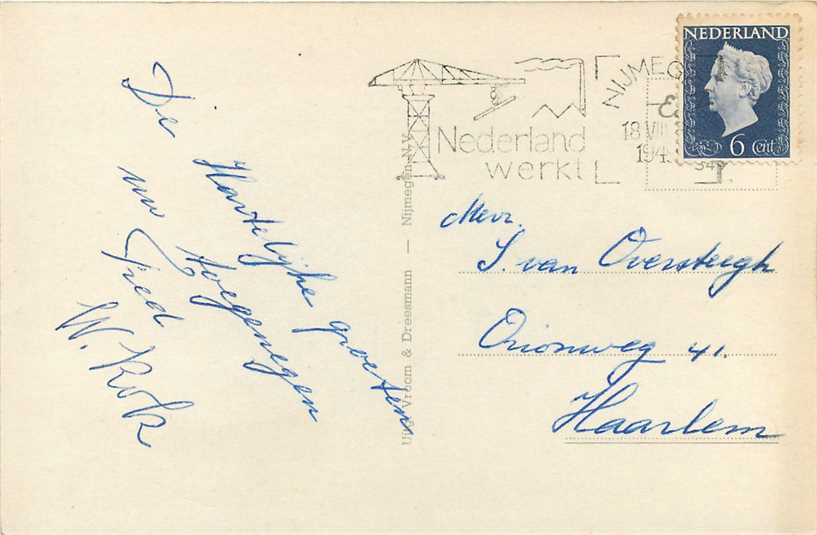 De Hartelijke groeten
uw toegenegen
Fred
W. Kok
Uitg. Vroom & Dreesmann — Nijmegen N.V.
Nederland
werkt
NIJMEG
18 VIII
194
NEDERLAND
6 Cent
Mevr.
S. van Oversteegh
Orionweg 41.
Haarlem